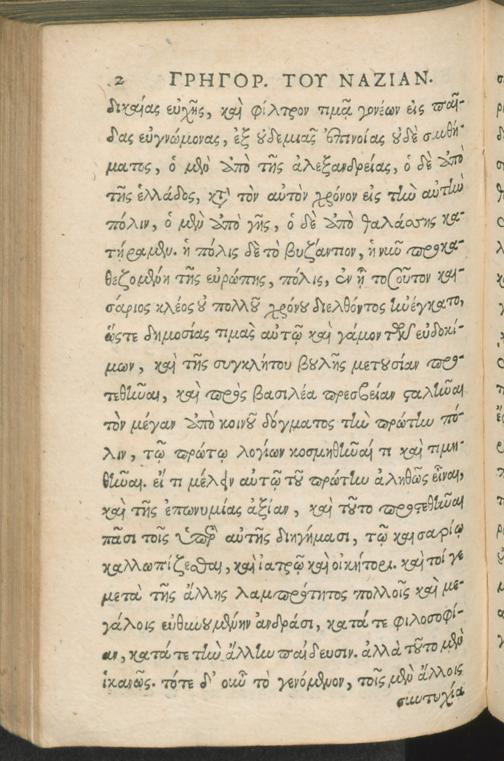 2 ΓΡΗΓΟΡ. ΤΟΥ ΝΑΖΙΑΝ.
δικαίας εὐχῆς, καὶ φίλτρον τιμᾷ γονέων εἰς παῖ-
δας εὐγνώμονας, ἐξ οὐδεμιᾶς ἐπινοίας οὐδὲ συνθή-
ματος, ὁ μὲν ἀπὸ τῆς ἀλεξανδρείας, ὁ δὲ ἀπὸ
τῆς ἑλλάδος, κατὰ τὸν αὐτὸν χρόνον εἰς τὴν αὐτὴν
πόλιν, ὁ μὲν ἀπὸ γῆς, ὁ δὲ ἀπὸ θαλάσσης κα-
τήραμεν. ἡ πόλις δὲ τὸ βυζάντιον, ἡ νῦν προκα-
θεζομένη τῆς εὐρώπης, πόλις, ἐν ᾗ τοσοῦτον και-
σάριος κλέος οὐ πολλοῦ χρόνου διελθόντος ἠνέγκατο,
ὥστε δημοσίας τιμὰς αὐτῷ καὶ γάμον τῶν εὐδοκί-
μων, καὶ τῆς συγκλήτου βουλῆς μετουσίαν προ-
τεθῆναι, καὶ πρὸς βασιλέα πρεσβείαν σταλῆναι
τὸν μέγαν ἀπὸ κοινοῦ δόγματος τὴν πρώτην πό-
λιν, τῷ πρώτῳ λογίων κοσμηθῆναί τι καὶ τιμη-
θῆναι. εἴ τι μέλειν αὐτῷ τοῦ πρώτην ἀληθῶς εἶναι,
καὶ τῆς ἐπωνυμίας ἀξίαν, καὶ τοῦτο προστεθῆναι
πᾶσι τοῖς ὑπὲρ αὐτῆς διηγήμασι, τῷ καισαρίῳ
καλλωπίζεσθαι, καὶ ἰατρῷ καὶ οἰκήτορι. καὶ τοί γε
μετὰ τῆς ἄλλης λαμπρότητος πολλοῖς καὶ με-
γάλοις εὐθηνουμένην ἀνδράσι, κατά τε φιλοσοφί-
αν, κατά τε τὴν ἄλλην παίδευσιν. ἀλλὰ τοῦτο μὲν
ἱκανῶς. τότε δ' οὖν τὸ γενόμενον, τοῖς μὲν ἄλλοις
συντυχία